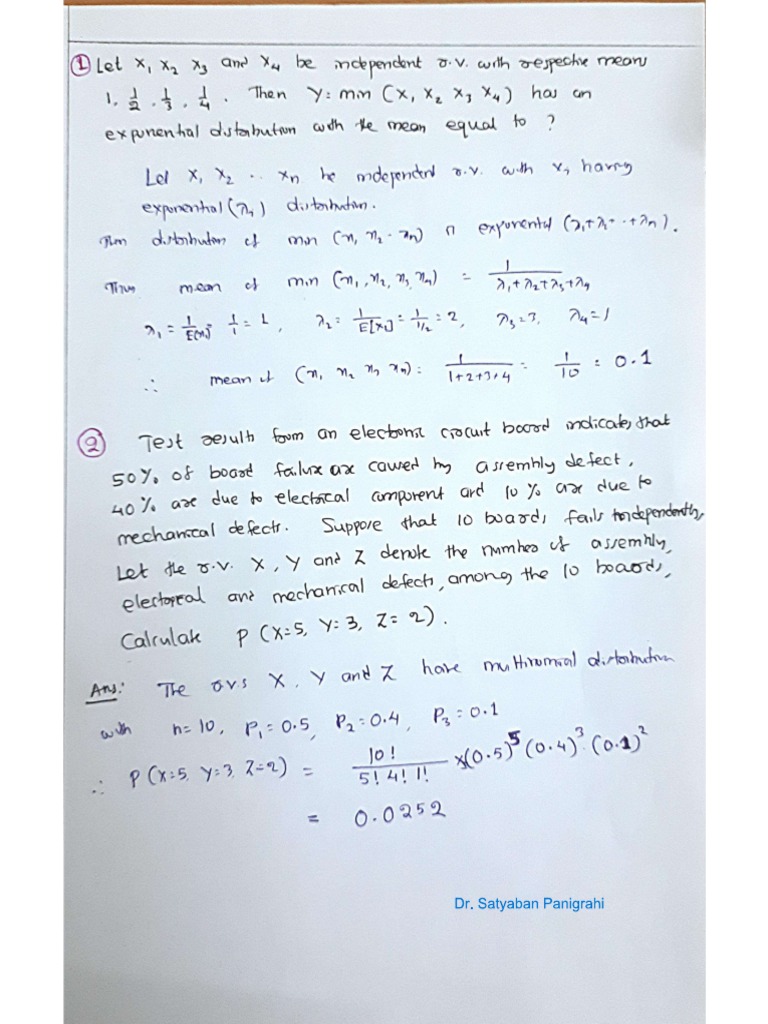 ① Let X₁ X₂ X₃ and X₄ be independent r.v. with respective means
1, 1/2, 1/3, 1/4. Then Y = min (X₁ X₂ X₃ X₄) has an
exponential distribution with the mean equal to ?
Let X₁ X₂ .. Xn be independent r.v. with x₁ having
exponential (λ₁) distribution.
Then distribution of min (x₁ x₂ .. xn) is exponential (λ₁+λ₂+ - +λn).
Thus mean of min (x₁, x₂, x₃, x₄) = 1/(λ₁+λ₂+λ₃+λ₄)
λ₁ = 1/E(x₁) = 1/1 = 1, λ₂ = 1/E[X₂] = 1/1/2 = 2, λ₃ = 3, λ₄ = 1
∴ mean of (x₁ x₂ x₃ x₄) = 1/(1+2+3+4) = 1/10 = 0.1
② Test result from an electronic circuit board indicates that
50% of board failure are caused by assembly defect,
40% are due to electrical component and 10% are due to
mechanical defects. Suppose that 10 boards fails independently,
Let the r.v. X, Y and Z denote the number of assembly,
electrical and mechanical defects, among the 10 boards,
Calculate P (X=5, Y=3, Z=2).
Ans: The rvs X, Y and Z have multinomial distribution
with n=10, P₁=0.5, P₂=0.4, P₃=0.1
∴ P (X=5, Y=3, Z=2) = 10!/(5! 4! 1!) x(0.5)⁵ (0.4)³ (0.1)²
= 0.0252
Dr. Satyaban Panigrahi